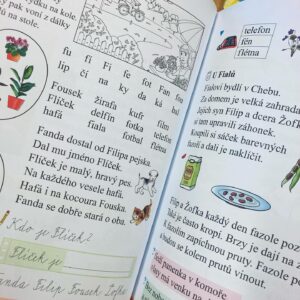 ýdku na kole.
pak voní z dálky
na stole.
fu fí Fi fe fot Fan fon
líp čí na ky da ká bal
Fousek žirafa kufr
Flíček delfín telefon
hafá fiala fotbal
Fanda dostal od Filipa pejska.
Dal mu jméno Flíček.
Flíček je malý, hravý pes.
Na každého vesele hafá.
Hafá i na kocoura Fouska.
Fanda se dobře stará o oba.
Kdo je Flíček?
Flíček je
Fanda Filip Fousek Žofka
telefon
fén
flétna
U Fialů
Fialovi bydlí v Chebu.
Za domem je velká zahrada
Jejich syn Filip a dcera Žofka
si tam upravili záhonek.
Koupili si sáček barevných
fazolí a dali je naklíčit.
Filip a Žofka každý den fazole po
také je často kropí. Brzy je dají na z
K fazolím zapíchnou pruty. Fazole p
a budou se kolem prutů vinout.
Sedí panenka v komoře,